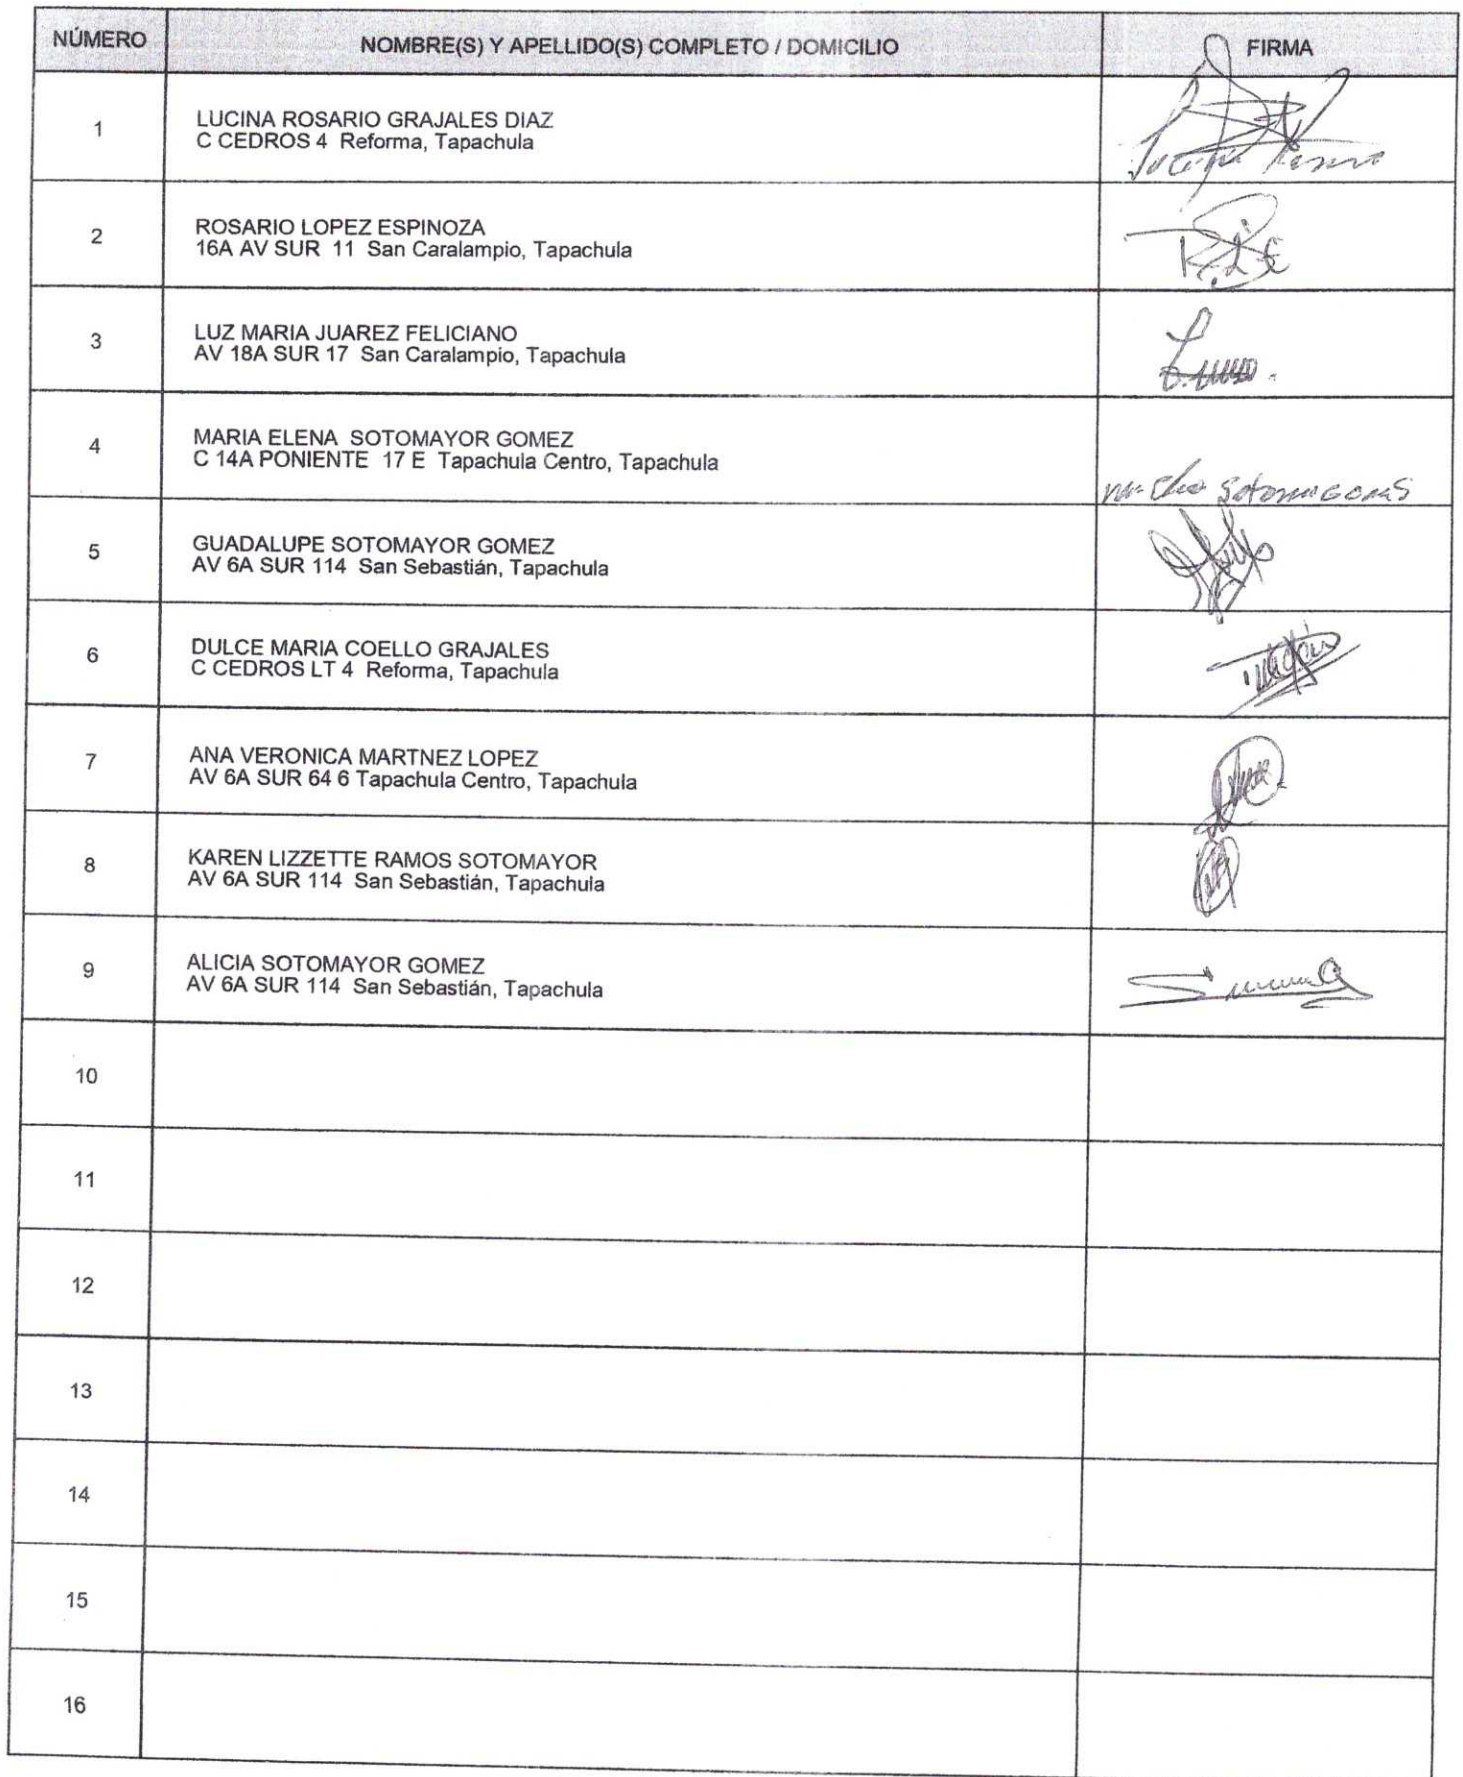 NÚMERO NOMBRE(S) Y APELLIDO(S) COMPLETO / DOMICILIO FIRMA
1 LUCINA ROSARIO GRAJALES DIAZ
C CEDROS 4 Reforma, Tapachula
2 ROSARIO LOPEZ ESPINOZA
16A AV SUR 11 San Caralampio, Tapachula
3 LUZ MARIA JUAREZ FELICIANO
AV 18A SUR 17 San Caralampio, Tapachula
4 MARIA ELENA SOTOMAYOR GOMEZ
C 14A PONIENTE 17 E Tapachula Centro, Tapachula
5 GUADALUPE SOTOMAYOR GOMEZ
AV 6A SUR 114 San Sebastián, Tapachula
6 DULCE MARIA COELLO GRAJALES
C CEDROS LT 4 Reforma, Tapachula
7 ANA VERONICA MARTNEZ LOPEZ
AV 6A SUR 64 6 Tapachula Centro, Tapachula
8 KAREN LIZZETTE RAMOS SOTOMAYOR
AV 6A SUR 114 San Sebastián, Tapachula
9 ALICIA SOTOMAYOR GOMEZ
AV 6A SUR 114 San Sebastián, Tapachula
10
11
12
13
14
15
16